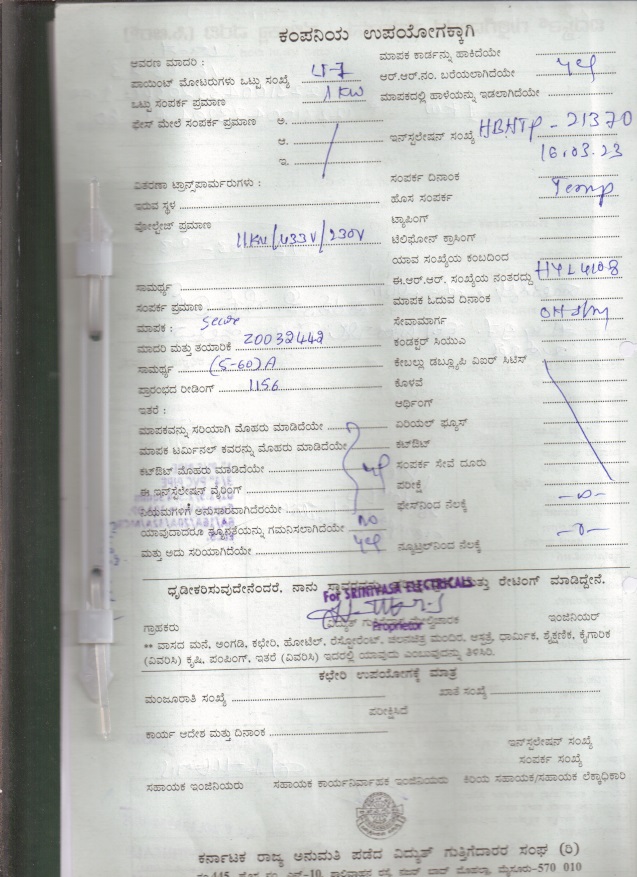 ಕಂಪನಿಯ ಉಪಯೋಗಕ್ಕಾಗಿ
ಆವರಣ ಮಾದರಿ : LT-7
ಪಾಯಿಂಟ್ ಮೋಟರುಗಳು ಒಟ್ಟು ಸಂಖ್ಯೆ
ಒಟ್ಟು ಸಂಪರ್ಕ ಪ್ರಮಾಣ 1KW
ಫೇಸ್ ಮೇಲೆ ಸಂಪರ್ಕ ಪ್ರಮಾಣ ಅ.
ಆ.
ಇ.
ವಿತರಣಾ ಟ್ರಾನ್ಸ್‌ಪಾರ್ಮರುಗಳು :
ಇರುವ ಸ್ಥಳ
ವೋಲ್ಟೇಜ್ ಪ್ರಮಾಣ
11KV/433V/230V
ಸಾಮರ್ಥ್ಯ
ಸಂಪರ್ಕ ಪ್ರಮಾಣ
ಮಾಪಕ : Secure
ಮಾದರಿ ಮತ್ತು ತಯಾರಿಕೆ 20032442
ಸಾಮರ್ಥ್ಯ (5-60)A
ಪ್ರಾರಂಭದ ರೀಡಿಂಗ್ 1156
ಇತರೆ :
ಮಾಪಕವನ್ನು ಸರಿಯಾಗಿ ಮೊಹರು ಮಾಡಿದೆಯೇ
ಮಾಪಕ ಟರ್ಮಿನಲ್ ಕವರನ್ನು ಮೊಹರು ಮಾಡಿದೆಯೇ
ಕಟ್‌ಔಟ್ ಮೊಹರು ಮಾಡಿದೆಯೇ yes
ಈ ಇನ್‌ಸ್ಟಲೇಷನ್ ವೈರಿಂಗ್
ನಿಯಮಗಳಿಗೆ ಅನುಸಾರವಾಗಿದೆರಯೇ
ಯಾವುದಾದರೂ ನ್ಯೂನತೆಯನ್ನು ಗಮನಿಸಲಾಗಿದೆಯೇ no
ಮತ್ತು ಅದು ಸರಿಯಾಗಿದೆಯೇ yes
ಮಾಪಕ ಕಾರ್ಡನ್ನು ಹಾಕಿದೆಯೇ
ಆರ್.ಆರ್.ನಂ. ಬರೆಯಲಾಗಿದೆಯೇ yes
ಮಾಪಕದಲ್ಲಿ ಹಾಳೆಯನ್ನು ಇಡಲಾಗಿದೆಯೇ
ಇನ್‌ಸ್ಟಲೇಷನ್ ಸಂಖ್ಯೆ HBHTP-21370
16.03.23
ಸಂಪರ್ಕ ದಿನಾಂಕ
ಹೊಸ ಸಂಪರ್ಕ Temp
ಟ್ಯಾಪಿಂಗ್
ಟೆಲಿಫೋನ್ ಕ್ರಾಸಿಂಗ್
ಯಾವ ಸಂಖ್ಯೆಯ ಕಂಬದಿಂದ
ಈ.ಆರ್.ಆರ್. ಸಂಖ್ಯೆಯ ನಂತರದ್ದು
ಮಾಪಕ ಓದುವ ದಿನಾಂಕ
ಸೇವಾಮಾರ್ಗ
ಕಂಡಕ್ಟರ್ ಸಿಯುಎ
ಕೇಬಲ್ಲು ಡಬ್ಲ್ಯೂಪಿ ವಿಐರ್ ಸಿಟಿಸ್
ಕೊಳವೆ
ಆರ್ಥಿಂಗ್
ಏರಿಯಲ್ ಫ್ಯೂಸ್
ಕಟ್‌ಔಟ್
ಸಂಪರ್ಕ ಸೇವೆ ದೂರು
ಪರೀಕ್ಷೆ
ಫೇಸ್‌ನಿಂದ ನೆಲಕ್ಕೆ
ನ್ಯೂಟ್ರಲ್‌ನಿಂದ ನೆಲಕ್ಕೆ
ಧೃಡೀಕರಿಸುವುದೇನೆಂದರೆ, ನಾನು ಮತ್ತು ರೇಟಿಂಗ್ ಮಾಡಿದ್ದೇನೆ.
For SRINIVASA ELECTRICALS
Proprietor
ಗ್ರಾಹಕರು ಇಂಜಿನಿಯರ್
** ವಾಸದ ಮನೆ, ಅಂಗಡಿ, ಕಛೇರಿ, ಹೋಟೆಲ್, ರೆಸ್ಟೋರೆಂಟ್, ಚಲನಚಿತ್ರ ಮಂದಿರ, ಆಸ್ಪತ್ರೆ, ಧಾರ್ಮಿಕ, ಶೈಕ್ಷಣಿಕ, ಕೈಗಾರಿಕ
(ವಿವರಿಸಿ) ಕೃಷಿ, ಪಂಪಿಂಗ್, ಇತರೆ (ವಿವರಿಸಿ) ಇದರಲ್ಲಿ ಯಾವುದು ಎಂಬುವುದನ್ನು ತಿಳಿಸಿರಿ.
ಕಛೇರಿ ಉಪಯೋಗಕ್ಕೆ ಮಾತ್ರ
ಮಂಜೂರಾತಿ ಸಂಖ್ಯೆ ಖಾತೆ ಸಂಖ್ಯೆ
ಪರೀಕ್ಷಿಸಿದೆ
ಕಾರ್ಯ ಆದೇಶ ಮತ್ತು ದಿನಾಂಕ
ಇನ್‌ಸ್ಟಲೇಷನ್ ಸಂಖ್ಯೆ
ಸಂಪರ್ಕ ಸಂಖ್ಯೆ
ಸಹಾಯಕ ಇಂಜಿನಿಯರು ಸಹಾಯಕ ಕಾರ್ಯನಿರ್ವಾಹಕ ಇಂಜಿನಿಯರು ಕಿರಿಯ ಸಹಾಯಕ/ಸಹಾಯಕ ಲೆಕ್ಕಾಧಿಕಾರಿ
ಕರ್ನಾಟಕ ರಾಜ್ಯ ಅನುಮತಿ ಪಡೆದ ವಿದ್ಯುತ್ ಗುತ್ತಿಗೆದಾರರ ಸಂಘ (ರಿ)
ಮೈಸೂರು-570 010